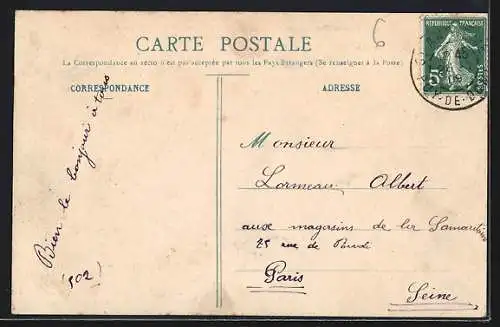 6
CARTE POSTALE
La Correspondance au recto n'est pas acceptée par tous les Pays Étrangers (Se renseigner à la Poste)
CORRESPONDANCE
ADRESSE
REPUBLIQUE FRANÇAISE
5c
POSTES
Y-DE-D
Bien le bonjour à tous
502
Monsieur
Lormeau Albert
aux magasins de la Samaritaine
25 rue de
Paris
Seine